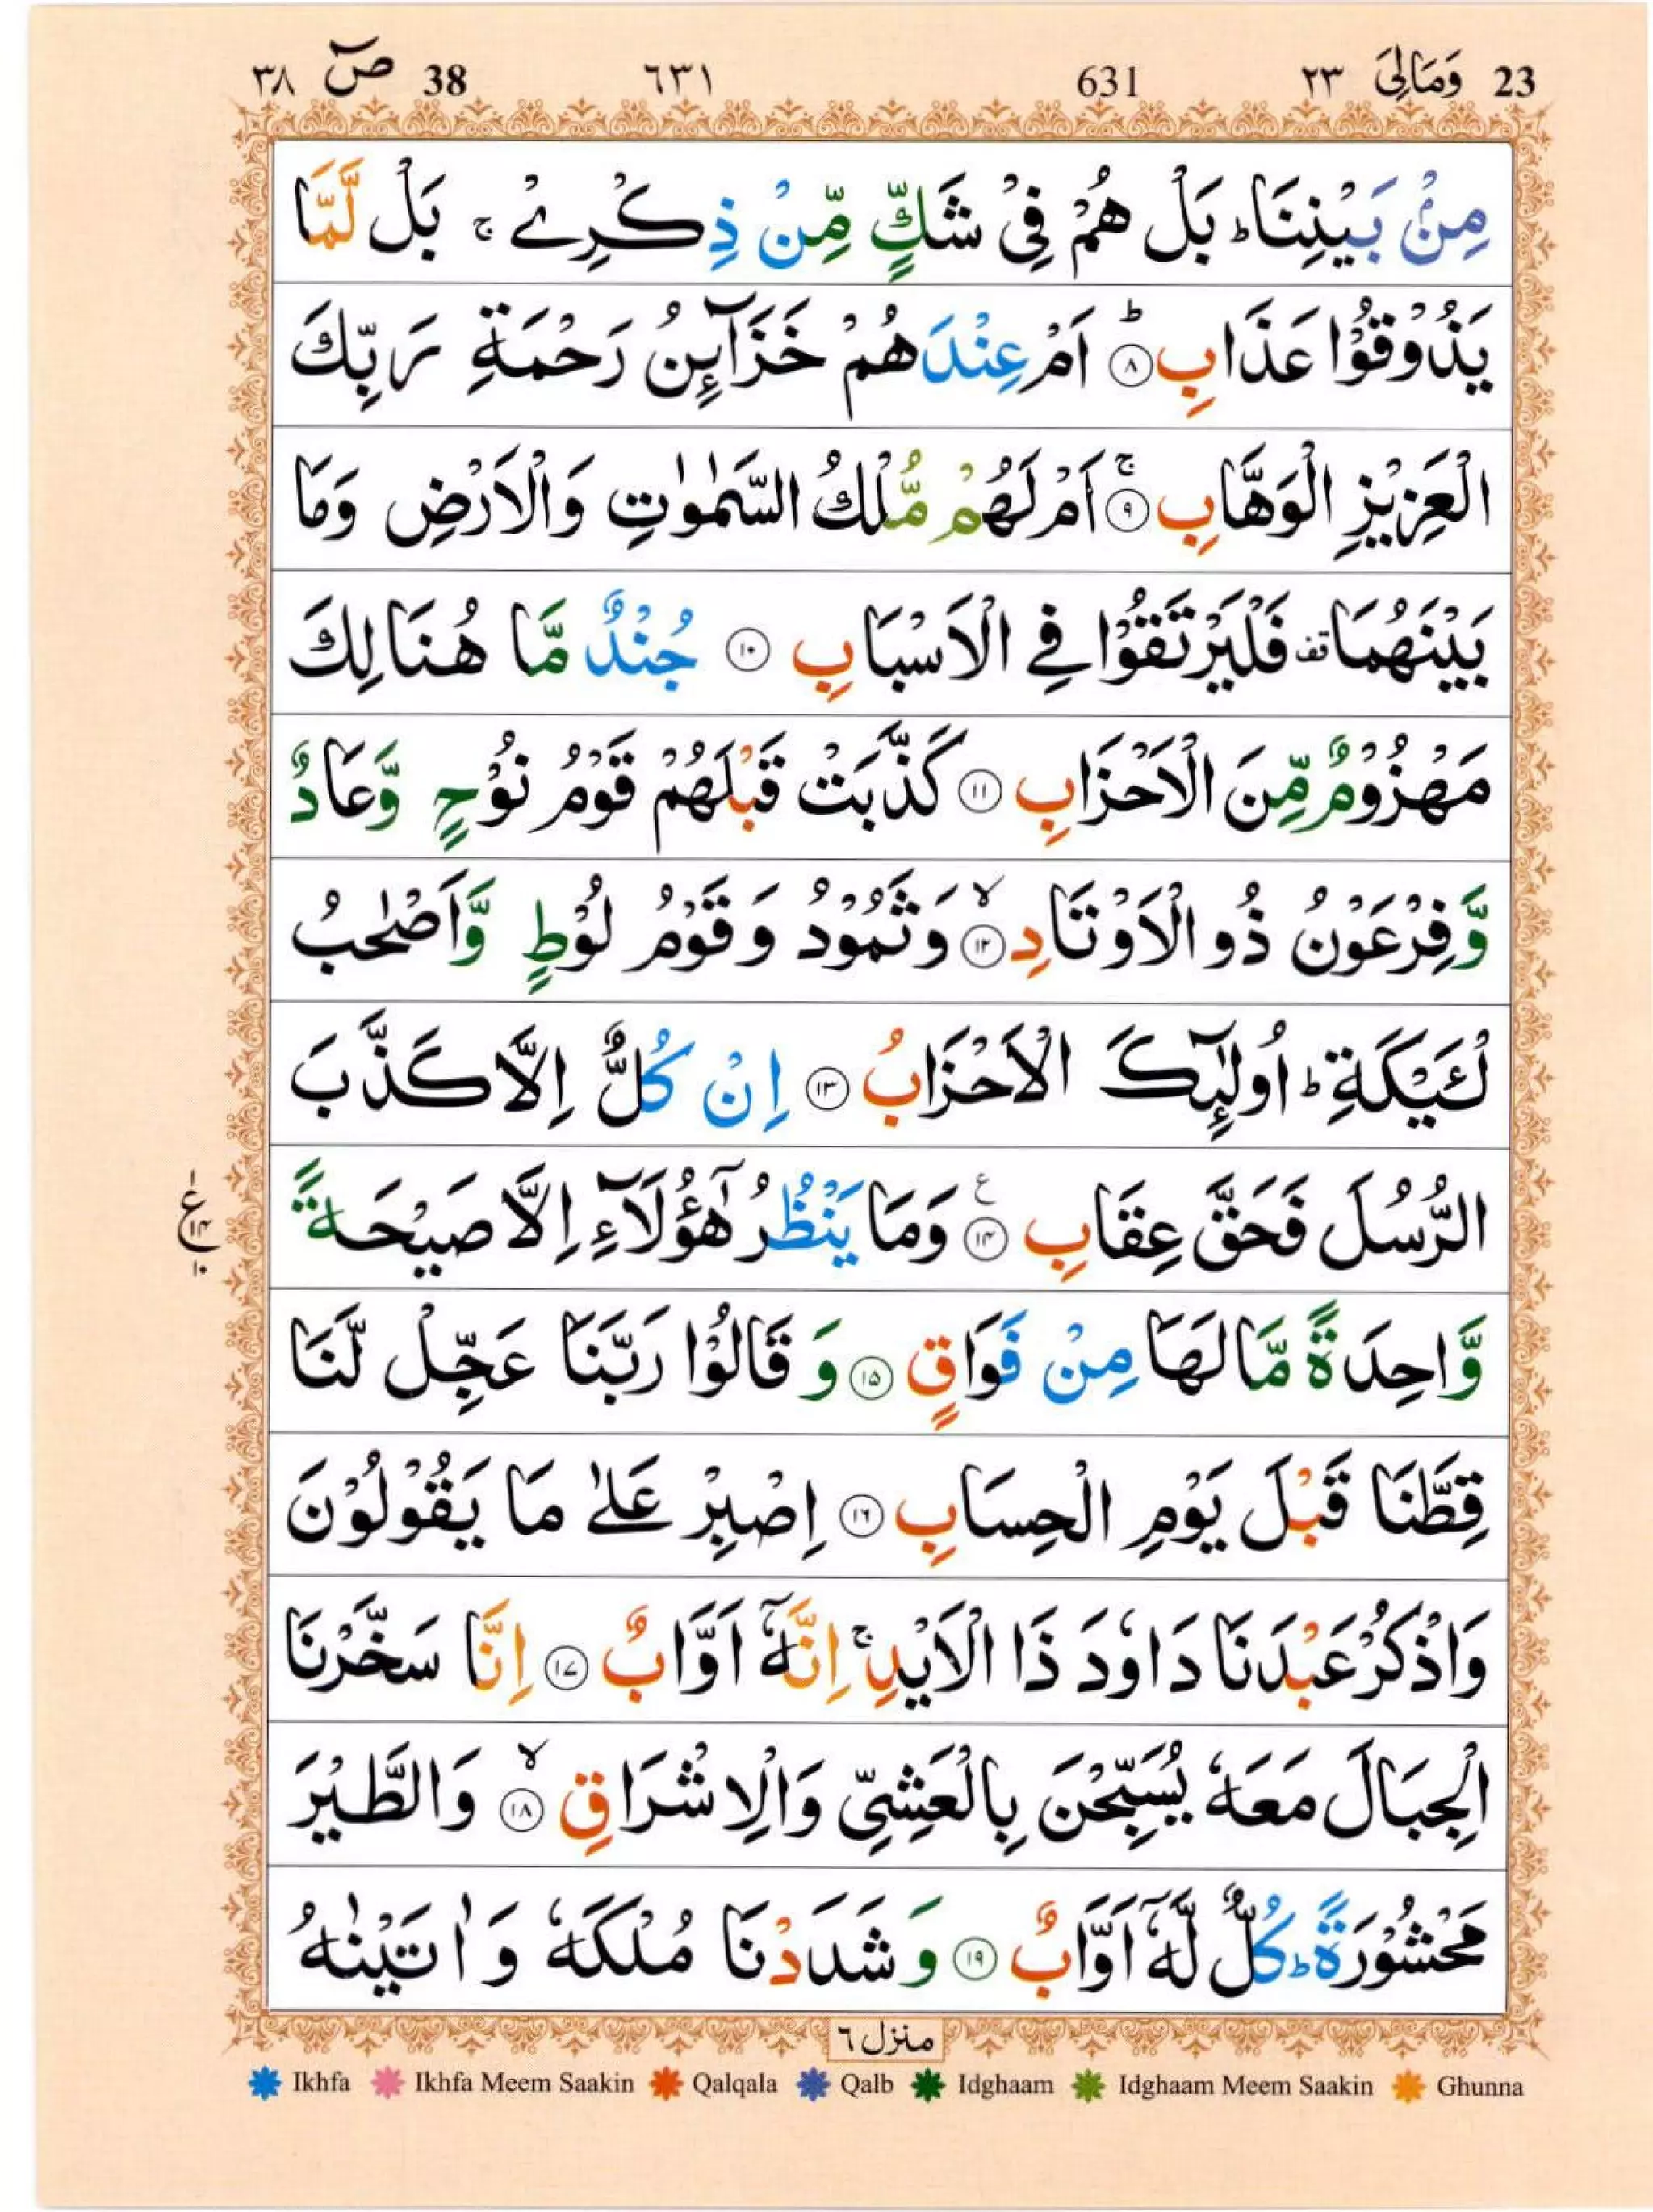 23 وَمَالِیَ ٢٣ 631 ٦٣١ 38 صٓ ٣٨
مِنْۢ بَيْنِنَا ؕ بَلْ هُمْ فِیْ شَكٍّ مِّنْ ذِكْرِیْ ۚ بَلْ لَّمَّا
يَذُوْقُوْا عَذَابِ ؕ ﴿٨﴾ اَمْ عِنْدَهُمْ خَزَآئِنُ رَحْمَةِ رَبِّكَ
الْعَزِيْزِ الْوَهَّابِ ۚ ﴿٩﴾ اَمْ لَهُمْ مُّلْكُ السَّمٰوٰتِ وَالْاَرْضِ وَمَا
بَيْنَهُمَا قف فَلْيَرْتَقُوْا فِی الْاَسْبَابِ ﴿١٠﴾ جُنْدٌ مَّا هُنَالِكَ
مَهْزُوْمٌ مِّنَ الْاَحْزَابِ ﴿١١﴾ كَذَّبَتْ قَبْلَهُمْ قَوْمُ نُوْحٍ وَّعَادٌ
وَّفِرْعَوْنُ ذُو الْاَوْتَادِ ۙ ﴿١٢﴾ وَثَمُوْدُ وَقَوْمُ لُوْطٍ وَّاَصْحٰبُ
لْـَٔيْكَةِ ؕ اُولٰٓئِكَ الْاَحْزَابُ ﴿١٣﴾ اِنْ كُلٌّ اِلَّا كَذَّبَ
الرُّسُلَ فَحَقَّ عِقَابِ ﴿١٤﴾ ع وَمَا يَنْظُرُ هٰٓؤُلَآءِ اِلَّا صَيْحَةً
ع ١ ١٤ ١٠
وَّاحِدَةً مَّا لَهَا مِنْ فَوَاقٍ ﴿١٥﴾ وَقَالُوْا رَبَّنَا عَجِّلْ لَّنَا
قِطَّنَا قَبْلَ يَوْمِ الْحِسَابِ ﴿١٦﴾ اِصْبِرْ عَلٰى مَا يَقُوْلُوْنَ
وَاذْكُرْ عَبْدَنَا دَاوٗدَ ذَا الْاَيْدِ ۚ اِنَّهٗٓ اَوَّابٌ ﴿١٧﴾ اِنَّا سَخَّرْنَا
الْجِبَالَ مَعَهٗ يُسَبِّحْنَ بِالْعَشِیِّ وَالْاِشْرَاقِ ۙ ﴿١٨﴾ وَالطَّيْرَ
مَحْشُوْرَةً ؕ كُلٌّ لَّهٗٓ اَوَّابٌ ﴿١٩﴾ وَشَدَدْنَا مُلْكَهٗ وَاٰتَيْنٰهُ
منزل ٦
Ikhfa Ikhfa Meem Saakin Qalqala Qalb Idghaam Idghaam Meem Saakin Ghunna